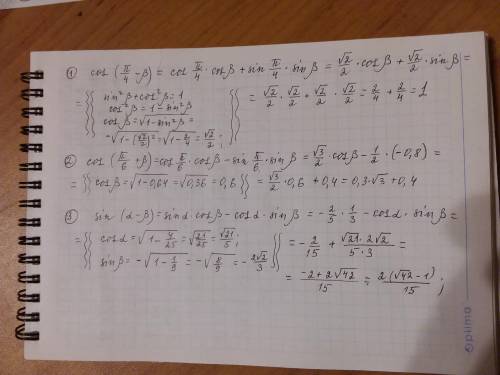 ① cos (π/4 - β) = cos π/4 · cos β + sin π/4 · sin β = √2/2 · cos β + √2/2 · sin β =
= { sin²β + cos²β = 1
cos²β = 1 - sin²β
cos β = √(1 - sin²β) =
= √(1 - (√2/2)²) = √(1 - 2/4) = √2/2; } = √2/2 · √2/2 + √2/2 · √2/2 = 2/4 + 2/4 = 1
② cos (π/6 + β) = cos π/6 · cos β - sin π/6 · sin β = √3/2 · cos β - 1/2 · (-0,8) =
= { cos β = √(1 - 0,64) = √0,36 = 0,6 } = √3/2 · 0,6 + 0,4 = 0,3 · √3 + 0,4
③ sin (α - β) = sin α · cos β - cos α · sin β = - 2/5 · 1/3 - cos α · sin β =
= { cos α = √(1 - 4/25) = √(21/25) = √21/5;
sin β = -√(1 - 1/9) = -√(8/9) = - 2√2/3 } = - 2/15 + √21 · 2√2/5 · 3 =
= -2 + 2√42/15 = 2(√42 - 1)/15;
Optima